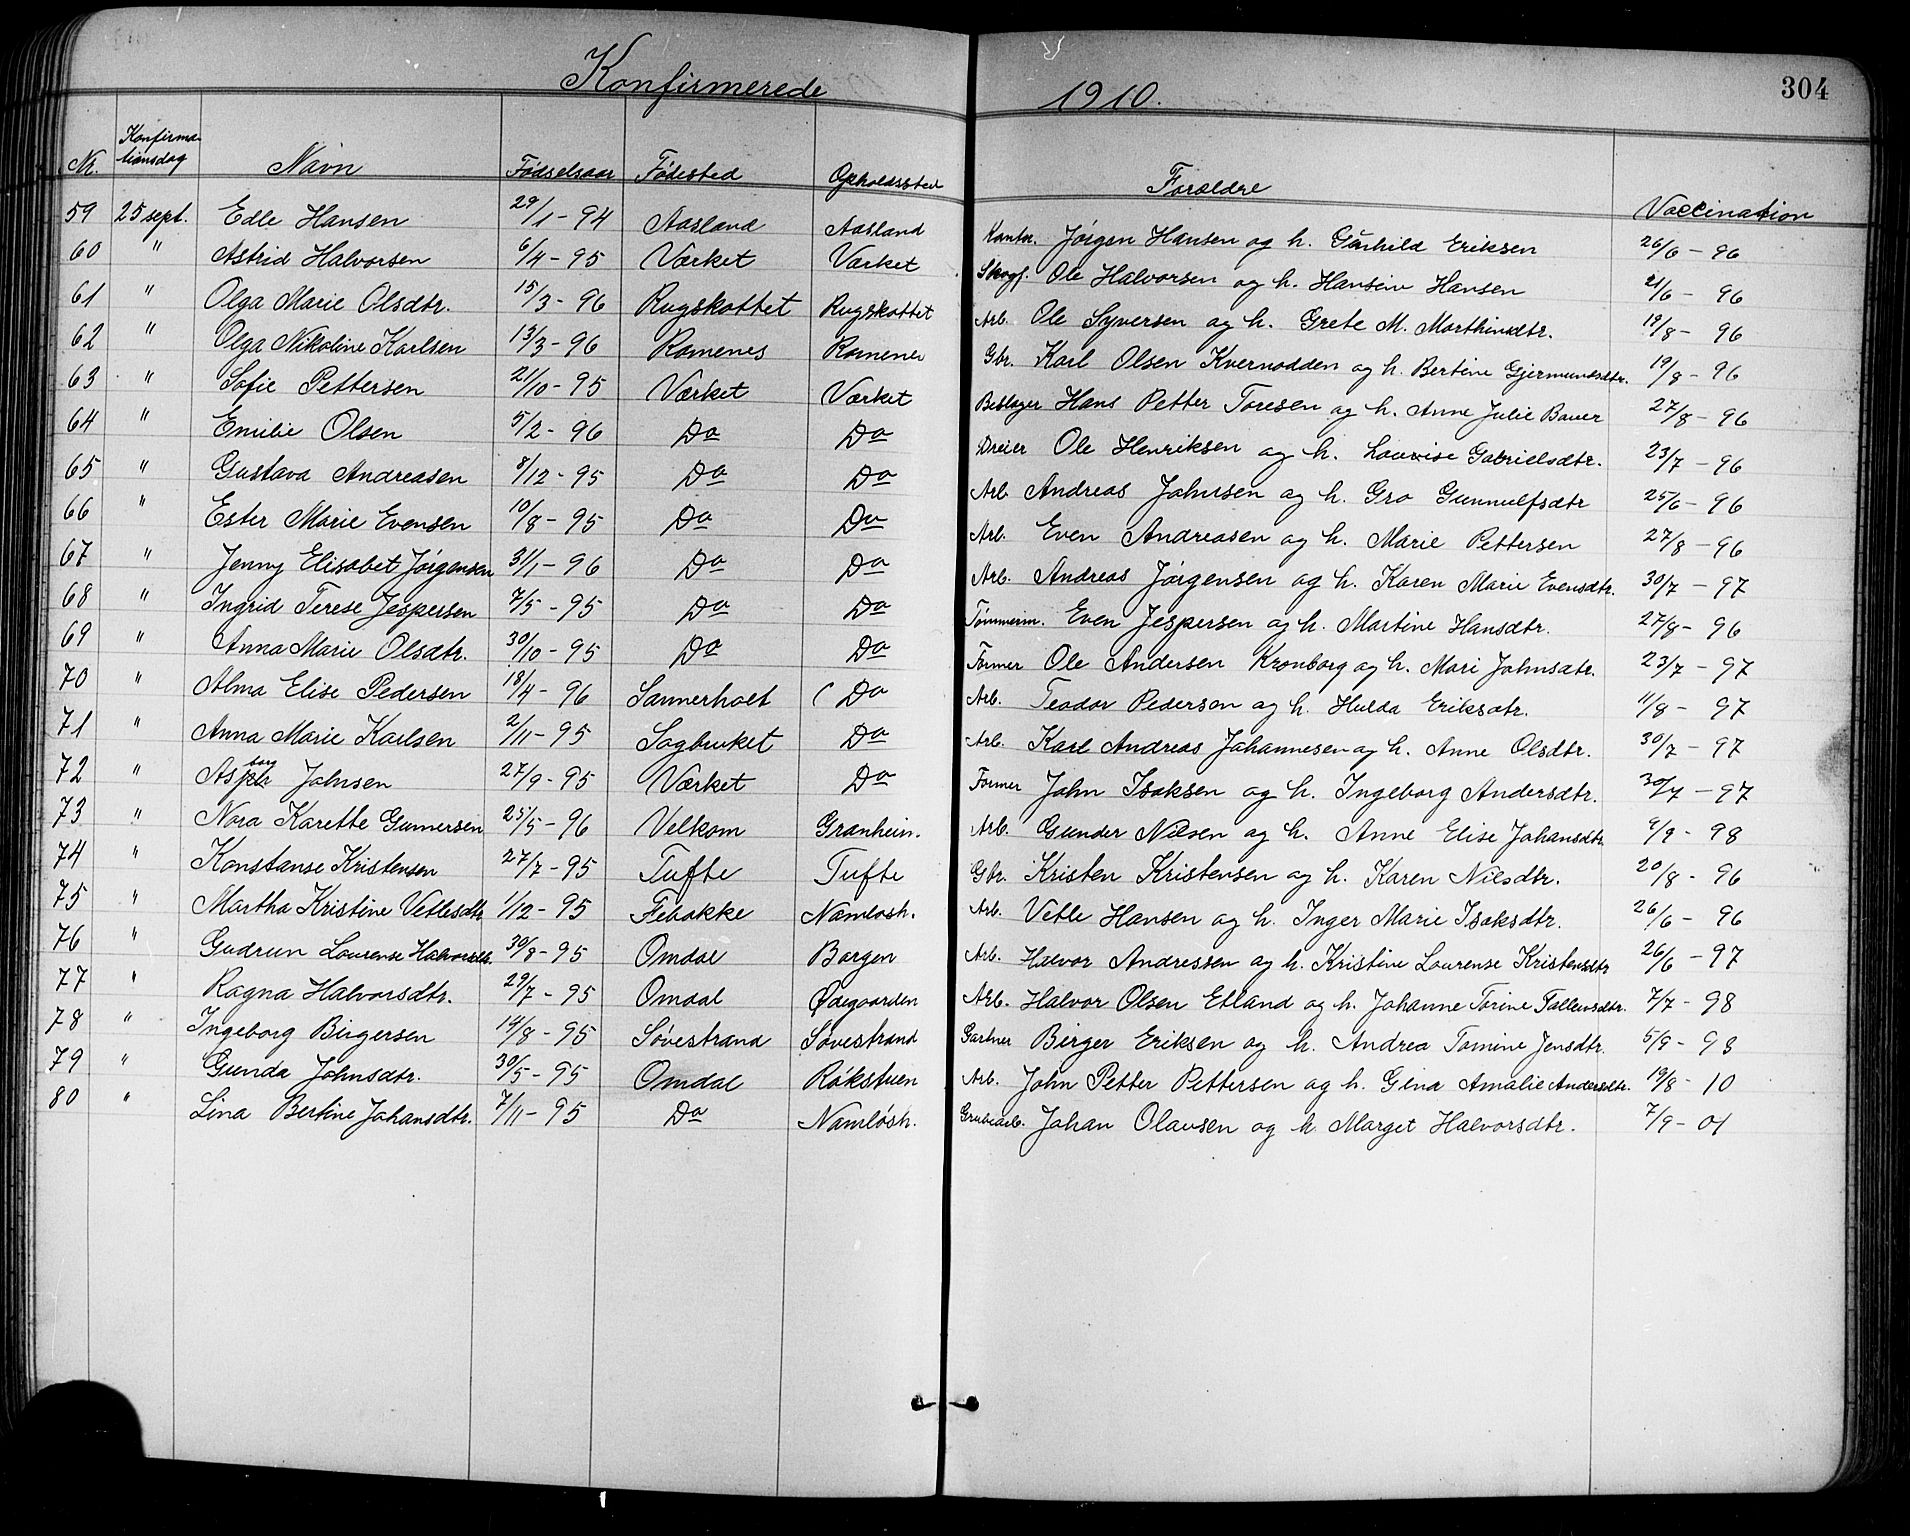 Konfirmerede 1910. 304
Nr. Konfirmationsdag Navn Fødselsaar Fødested Opholdssted Forældre Vaccination
59 25 sept. Edle Hansen 29/1 - 94 Aasland Aasland Kontor. Jørgen Hansen og h. Gunhild Eriksen 26/6 - 96
60 " Astrid Halvorsen 6/4 - 95 Værket Værket Skogf. Ole Halvorsen og h. Hansine Hansen 21/6 - 96
61 " Olga Marie Olsdtr. 15/3 - 96 Rugskottet Rugskottet Arb. Ole Syversen og h. Grete M. Marthinsdtr. 19/8 - 96
62 " Olga Nikoline Karlsen 13/3 - 96 Romenes Romenes Gbr. Karl Olsen Kvernodden og h. Bertine Gjermundsdtr. 19/8 - 96
63 " Sofie Pettersen 21/10 - 95 Værket Værket Beslager Hans Petter Toresen og h. Anne Julie Bauer 27/8 - 96
64 " Emilie Olsen 5/2 - 96 Do Do Dreier Ole Henriksen og h. Lovise Gabrielsdtr. 23/7 - 96
65 " Gustava Andreasen 8/12 - 95 Do Do Arb. Andreas Johnsen og h. Gro Gunnulfsdtr 25/6 - 96
66 " Ester Marie Evensen 10/8 - 95 Do Do Arb. Even Andreasen og h. Marie Pettersen 27/8 - 96
67 " Jenny Elisabet Jørgensen 31/1 - 96 Do Do Arb. Andreas Jørgensen og h. Karen Marie Evensdtr. 30/7 - 97
68 " Ingrid Terese Jespersen 7/5 - 95 Do Do Tømmerm. Even Jespersen og h. Martine Hansdtr. 27/8 - 96
69 " Anna Marie Olsdtr. 30/10 - 95 Do Do Former Ole Andersen Kronborg og h. Mari Johnsdtr. 23/7 - 97
70 " Alma Elise Pedersen 18/4 - 96 Sannerholt ( Do Arb. Teodor Pedersen og h. Hulda Eriksdtr. 11/8 - 97
71 " Anna Marie Karlsen 2/11 - 95 Sagbruket Do Arb. Karl Andreas Johannesen og h. Anne Olsdtr. 30/7 - 97
72 " Asbor Johnsen 27/9 - 95 Værket Do Former John Isaksen og h. Ingeborg Andersdtr. 30/7 - 97
73 " Nora Karette Gunnersen 25/5 - 96 Velkom Granheim. Arb. Gunder Nilsen og h. Anne Elise Johansdtr. 9/9 - 98
74 " Konstanse Kristensen 27/7 - 95 Tufte Tufte Gbr. Kristen Kristensen og h. Karen Nilsdtr. 20/8 - 96
75 " Martha Kristine Vetlesdtr 1/12 - 95 Febakke Namløsh. Arb. Vetle Hansen og h. Inger Marie Isaksdtr. 26/6 - 96
76 " Gudrun Laurense Halvorsdtr. 30/8 - 95 Omdal Borgen Arb. Halvor Andressen og h. Kristine Laurense Kristensdtr 26/6 - 97
77 " Ragna Halvorsdtr. 29/7 - 95 Omdal Ødegaarden Arb. Halvor Olsen Etland og h. Johanne Torine Tallevsdtr. 7/7 - 98
78 " Ingeborg Birgersen 14/8 - 95 Søvestrand Søvestrand Gartner Birger Eriksen og h. Andrea Tomine Jensdtr. 5/9 - 98
79 " Gunda Johnsdtr. 30/5 - 95 Omdal Røkstuen Arb. John Petter Pettersen og h. Gina Amalie Andersdtr. 19/8 - 10
80 " Lina Bertine Johansdtr. 7/11 - 95 Do Namløsh. Grubearb. Johan Olavsen og h. Marget Halvorsdtr. 7/9 - 01